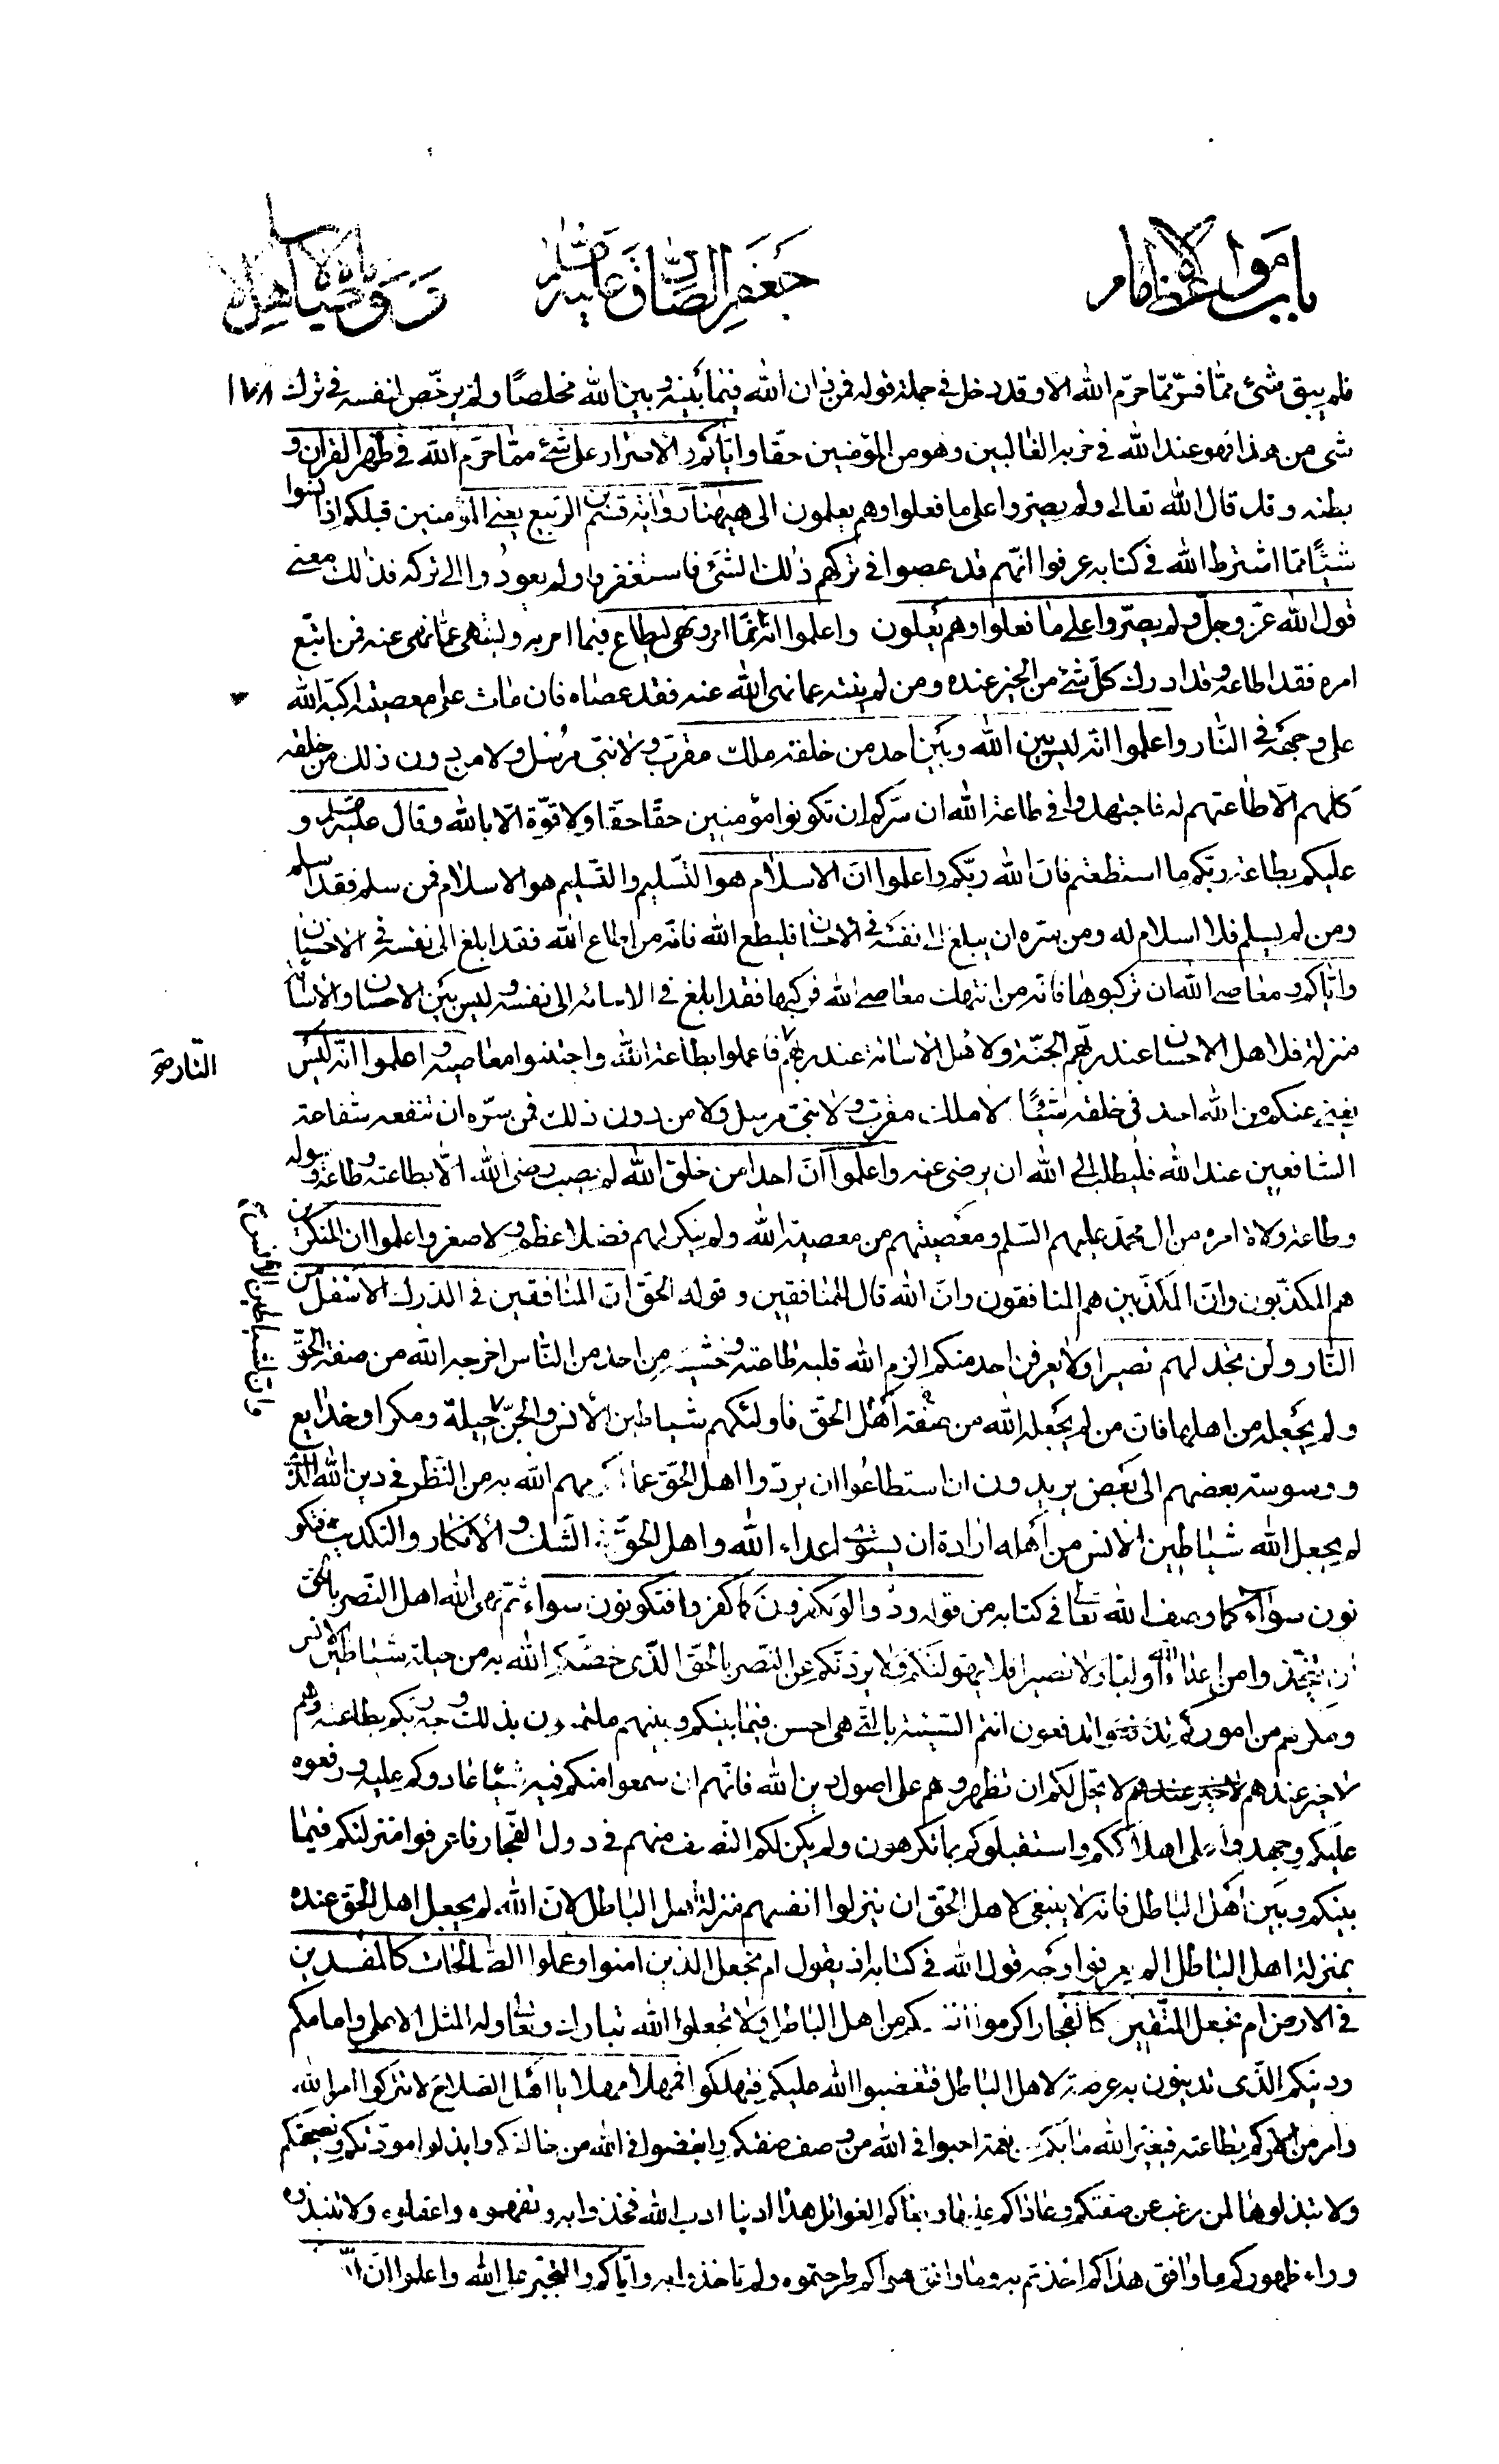 باب مواعظ الامام جعفر الصادق عليه السلام
١٧٨
فلم يبق شئ ممّا فسّر ممّا حرّم الله الا وقد دخل في جملة قوله فمن دان الله فيما بينه وبين الله مخلصًا ولم يرخّص لنفسه في ترك
شئ من هذا فهو عند الله في حزبه الغالبين وهو من المؤمنين حقّا واياكم والاصرار على شئ ممّا حرّم الله في ظهر القران و
بطنه وقد قال الله تعالى ولم يصرّوا على ما فعلوا وهم يعلمون الى هيهنا رواية قسم بن الربيع يعني المؤمنين قبلكم اذا نسوا
شيئًا ممّا اشترط الله في كتابه عرفوا انّهم قد عصوا في تركهم ذلك الشئ فاستغفروا ولم يعودوا الى تركه فذلك معنى
قول الله عزّ وجلّ ولم يصرّوا على ما فعلوا وهم يعلمون واعلموا انّه انّما امر ونهى ليطاع فيما امر به ولينتهى عمّا نهى عنه فمن اتبّع
امره فقد اطاعه وقد ادرك كلّ شئ من الخير عنده ومن لم ينته عما نهى الله عنه فقد عصاه فان مات على معصيته اكبّه الله
على وجهه في النّار واعلموا انّه ليس بين الله وبين احد من خلقه ملك مقرب ولا نبيّ مرسل ولا من دون ذلك من خلقه
كلهم الّا طاعتهم له فاجتهدوا في طاعة الله ان سرّكم ان تكونوا مؤمنين حقّا حقّا ولا قوّة الّا بالله وقال عليه السلم و
عليكم بطاعة ربّكم ما استطعتم فانّ الله ربّكم واعلموا انّ الاسلام هو التّسليم والتسليم هو الاسلام فمن سلم فقد اسلم
ومن لم يسلم فلا اسلام له ومن سرّه ان يبلغ الى نفسه في الاحسان فليطع الله فانّه من اطاع الله فقد ابلغ الى نفسه في الاحسان
وايّاكم ومعاصى الله ان تركبوها فانّه من انتهك معاصى الله فركبها فقد ابلغ في الاسائة الى نفسه وليس بين الاحسان والاسائة
منزلة فلاهل الاحسان عند ربّهم الجنّة ولاهل الاسائة عند ربهم فاعملوا بطاعة الله واجتنبوا معاصيه واعلموا انّه ليس
النّار صح
يغنى عنكم من الله احد في خلقه شيئًا لا ملك مقرب ولا نبيّ مرسل ولا من دون ذلك فمن سرّه ان تنفعه شفاعة
الشافعين عند الله فليطلب الى الله ان يرضى عنه واعلموا انّ احدا من خلق الله لم يصب رضى الله الّا بطاعته وطاعة رسوله
وطاعة ولاة امره من ال محمّد عليهم السّلم ومعصيتهم من معصية الله ولم ينكر لهم فضلا عظم ولا صغر واعلموا ان المنكرين
هم المكذّبون وانّ المكذّبين هم المنافقون وانّ الله قال للمنافقين وقوله الحقّ انّ المنافقين في الدّرك الاسفل من
النّار ولن تجد لهم نصيرا ولا يعرفن احد منكم الزم الله قلبه طاعته وخشيته من احد من النّاس اخرجه الله من صفة الحقّ
ولم يجعله من اهلها فان من لم يجعله الله من صفة اهل الحقّ فاولئك هم شياطين الانس والجنّ حيلة ومكرا وخدايع
وانّ لشياطين الانس
ووسوسة بعضهم الى بعض يريدون ان استطاعوا ان يردّوا اهل الحقّ عمّا اكرمهم الله به من النّظر في دين الله الذى
لم يجعل الله شياطين الانس من اهله ارادة ان يستوى اعداء الله واهل الحقّ في الشك والانكار والتكذيب فيكو
نون سواء كما وصف الله تعالى في كتابه من قوله ودّوا لو تكفرون كما كفروا فتكونون سواء ثمّ نهى الله اهل النّصر بالحق
ان يتّخذوا من اعداء الله وليّا ولا نصيرا فلا يهولنّكم ولا يردّنّكم عن النّصر بالحقّ الذّى خصّكم الله به من حيلة شياطين الانس
ومكرهم من اموركم تدفعون انتم السّيئة بالتّى هى احسن فيما بينكم وبينهم ملتمسون بذلك وجه ربّكم بطاعته وهم
لا خير عندهم لا يحلّ لكم ان تظهروهم على اصول دين الله فانّهم ان سمعوا منكم فيه شيئا عادوكم عليه ورفعوه
عليكم وجهدوا على اهلاككم واستقبلوكم بما تكرهون ولم يكن لكم النّصف منهم في دول الفجّار فاعرفوا منزلتكم فيما
بينكم وبين اهل الباطل فانّه لا ينبغى لاهل الحقّ ان ينزلوا انفسهم منزلة اهل الباطل لانّ الله لم يجعل اهل الحقّ عنده
بمنزلة اهل الباطل الم يعرفوا وجه قول الله في كتابه اذ يقول ام نجعل الذين امنوا وعملوا الصّالحات كالمفسدين
في الارض ام نجعل المتّقين كالفجار اكرموا انفسكم من اهل الباطل ولا تجعلوا الله تبارك وتعالى وله المثل الاعلى وامامكم
ودينكم الذّى تدينون به عرضة لاهل الباطل فتغضبوا الله عليكم فتهلكوا فمهلا مهلا يا اهل الصلاح لا تتركوا امر الله
وامر من امركم بطاعته فيغيّر الله ما بكم من نعمة احبوا في الله من وصف صفتكم وابغضوا في الله من خالفكم وابذلوا مودّتكم ونصيحتكم
ولا تبذلوها لمن رغب عن صفتكم وعاداكم عليها وبغاكم الغوائل هذا ادبنا ادب الله فخذوا به وتفهّموه واعقلوه ولا تنبذوه
وراء ظهوركم ما وافق هداكم اخذتم به وما وافق هواكم طرحتموه ولم تاخذوا به وايّاكم والتجبّر على الله واعلموا انّ